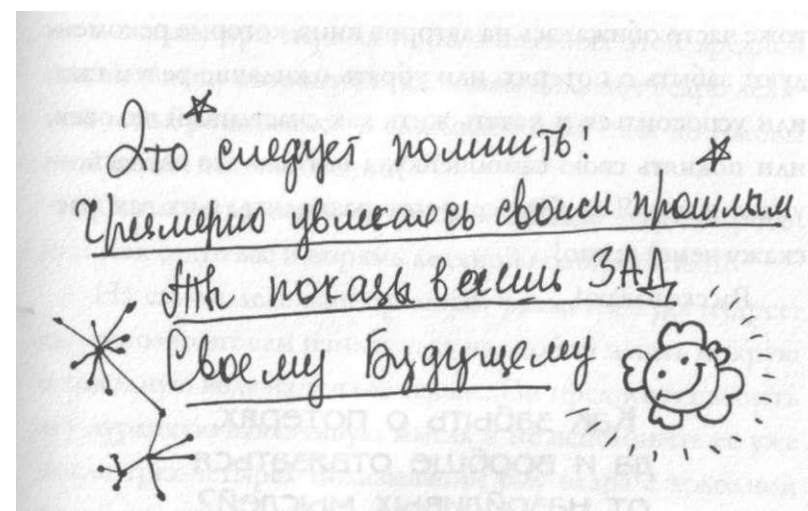 Это следует помнить!
Чрезмерно увлекаясь своим прошлым
ТЫ показываешь ЗАД
Своему Будущему